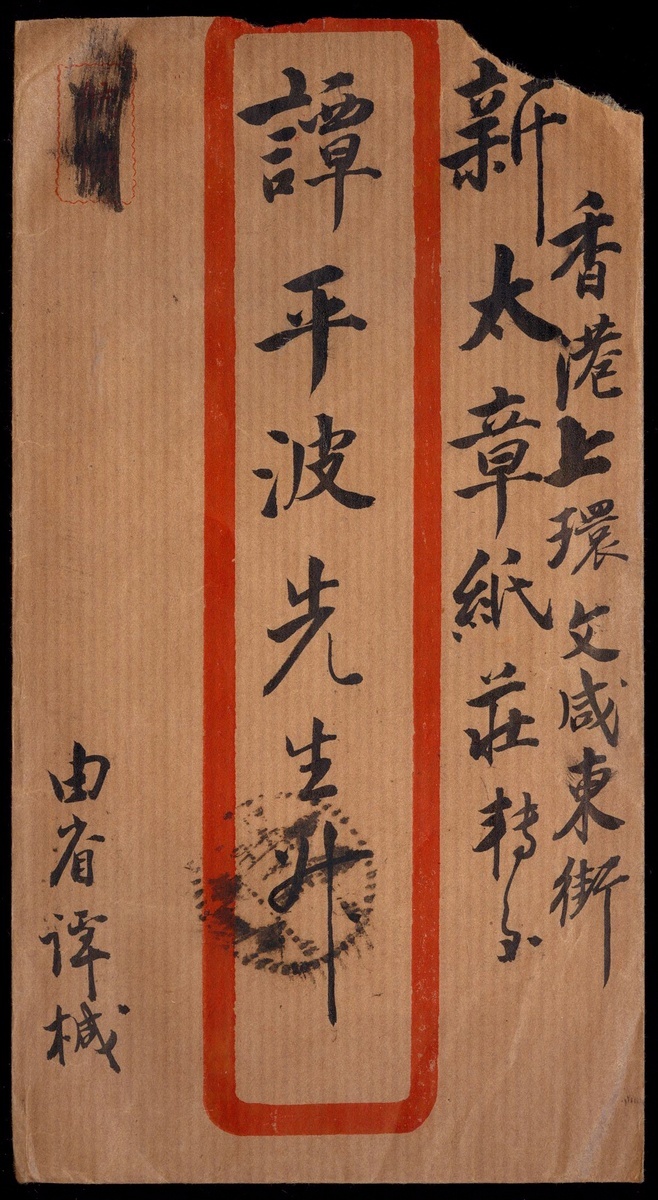 香港上環文咸東街
新太章紙莊轉交
譚平波先生升
由省譚椷